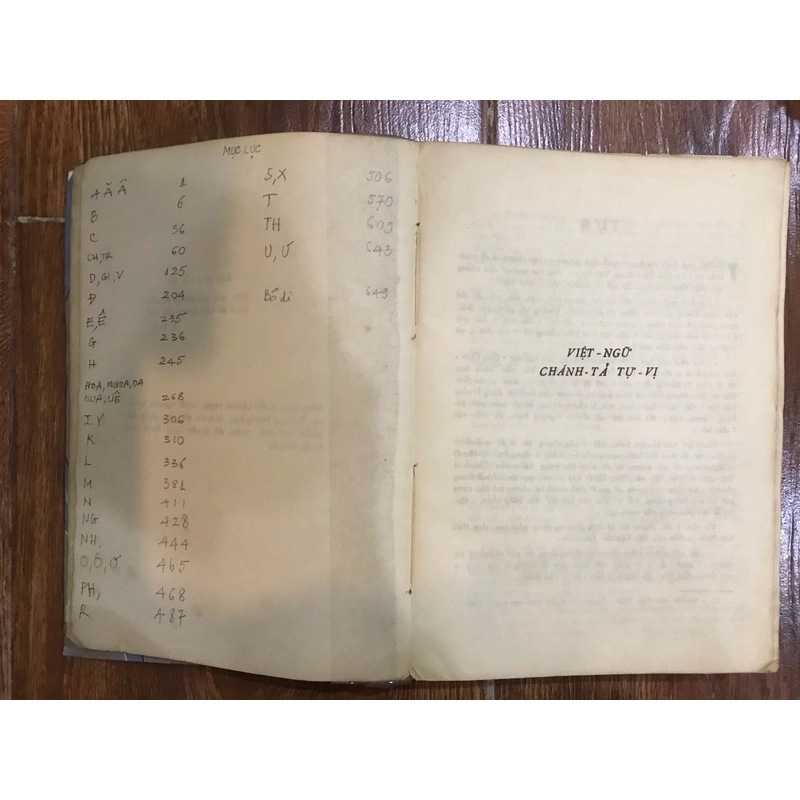 MỤC LỤC
A Ă Â 1
B 6
C 36
CH, TR 60
D, GI, V 125
Đ 204
E, Ê 235
G 236
H 245
HOA, NGOA, OA
QUA, UÊ 268
I Y 306
K 310
L 336
M 381
N 411
NG 428
NH, 444
O, Ô, Ơ 465
PH, 468
R 487
S, X 506
T 570
TH 609
U, Ư 643
Bổ di 649
VIỆT - NGỮ
CHÁNH - TẢ TỰ - VỊ